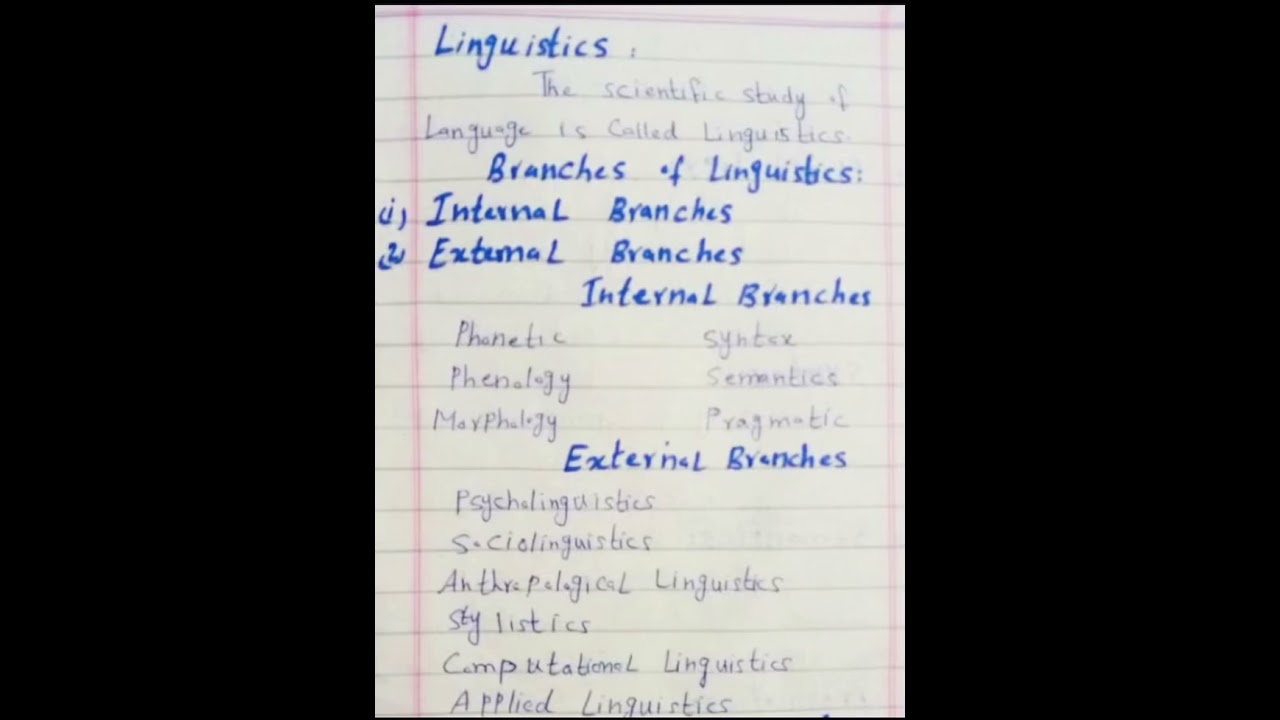 Linguistics :
The scientific study of
Language is Called Linguistics.
Branches of Linguistics:
(1) Internal Branches
(2) External Branches
Internal Branches
Phonetic Syntax
Phenology Semantics
Morphology Pragmatic
External Branches
Psycholinguistics
Sociolinguistics
Anthropological Linguistics
Stylistics
Computational Linguistics
Applied Linguistics